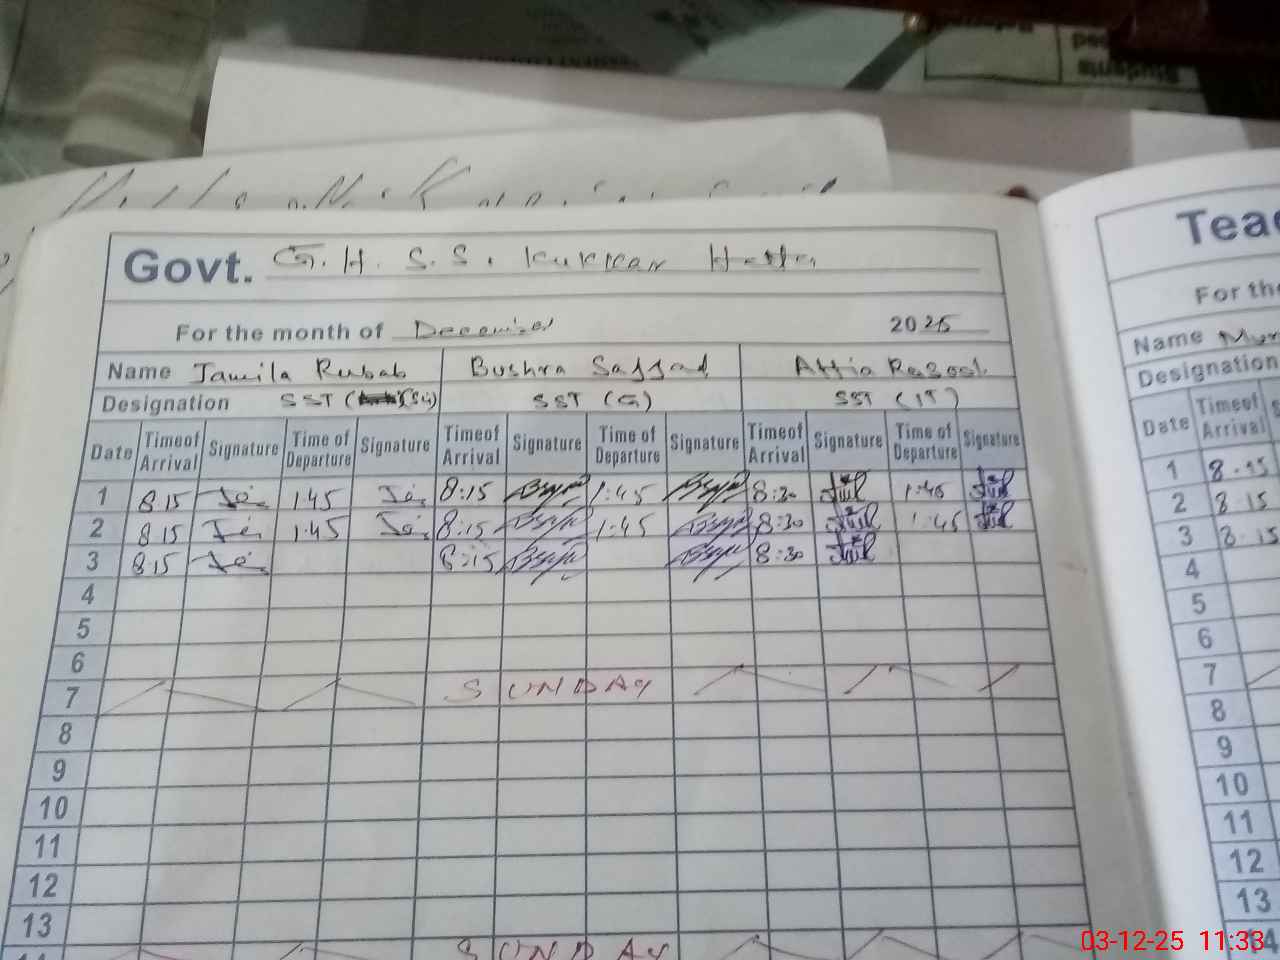 Students
Govt. G.H.S.S. Kukkar Hatta
For the month of December 2025
Name Jamila Rubab Bushra Sajjad Attia Rasool
Designation SST (Sci) SST (G) SST (IT)
Date Timeof Arrival Signature Time of Departure Signature Timeof Arrival Signature Time of Departure Signature Timeof Arrival Signature Time of Departure Signature
1 8 15 1:45 8:15 1:45 8:30 1:45
2 8 15 1:45 8:15 1:45 8:30 1:45
3 8:15 8:15 8:30
4
5
6
7 SUNDAY
8
9
10
11
12
13
SUNDAY
Tea
For the
Name
Designation
Date Timeof Arrival
1 8-15
2 8 15
3 8:15
4
5
6
7
8
9
10
11
12
13
14
03-12-25 11:33